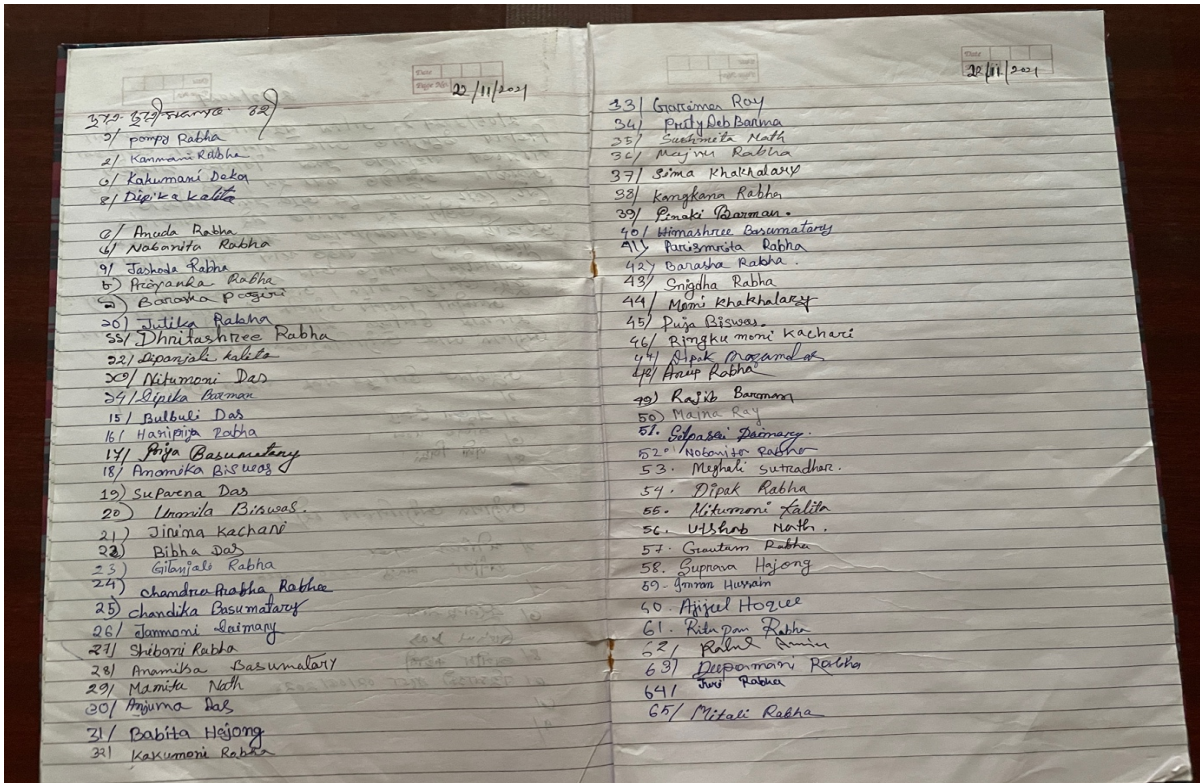 22/11/2021
১/ pompy Rabha
২/ Kanmani Rabha
৩/ Kakumani Deka
৪/ Dipika Kalita
৫/ Anuda Rabha
৬/ Nabanita Rabha
৭/ Jashoda Rabha
৮/ Priyanka Rabha
৯/ Barasha
১০/ Jutika Rabha
১১/ Dhritashree Rabha
১২/ Dipanjali Kalita
১৩/ Nitumoni Das
১৪/ Dipika Barman
15/ Bulbuli Das
16/ Haripija Rabha
17/ Priya Basumatary
18/ Anamika Biswas
19) Suparna Das
20) Urmila Biswas.
21) Jinima Kachari
22) Bibha Das
23) Gitanjali Rabha
24) chandra Prabha Rabha
25) chandika Basumatary
26/ Janmoni Daimary
27/ Shibani Rabha
28/ Anamika Basumatary
29/ Mamita Nath
30/ Anjuma Das
31/ Babita Hajong
32/ Kakumoni Rabha
22/11/2021
33/ Garima Ray
34/ Prity Deb Barma
35/ Sushmita Nath
36/ Majnu Rabha
37/ Sima Khakhalary
38/ Kangkana Rabha
39/ Pinaki Barman.
40/ Himashree Basumatary
41) Parismrita Rabha
42) Barasha Rabha.
43) Snigdha Rabha
44/ Momi Khakhalary
45/ Puja Biswas.
46/ Ringku moni Kachari
47/ Dipak Mozumdar
48/ Anup Rabha
49) Rajib Barman
50) Maina Ray
51. Daimary.
52. Nabanita Rabha
53. Meghali Sutradhar.
54. Dipak Rabha
55. Mitumoni Kalita
56. Utshab Nath.
57. Gautam Rabha
58. Suprava Hajong
59. Imran Hussain
60. Ajijul Hoque
61. Ritu pan Rabha
62/ Amin
63) Deepamani Rabha
64/ Juri Rabha
65/ Mitali Rabha